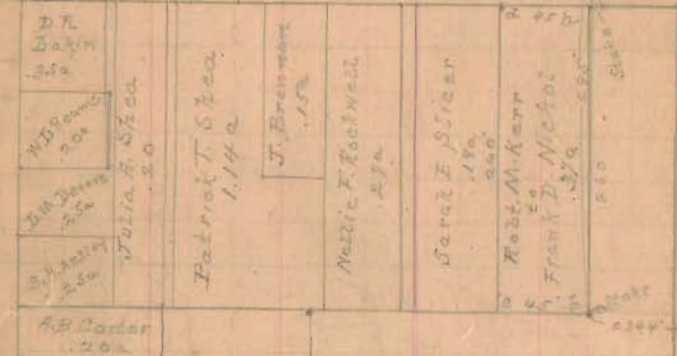 D. R.
Dakin
.25a
W. D. Reams
.20a
D. M. Devore
.25a
.25a
A. B. Carter
.20a
Julia A. Shea
.20
Patrick T. Shea
1.14 a
J. Brennan
.15a
Nellie F. Rockwell
.27a
Sarah E. Slicer
.18a
240
a 45 b
Robt. M. Kerr
to
Frank D. Nichol
.27a
45
Stake
240
Stake